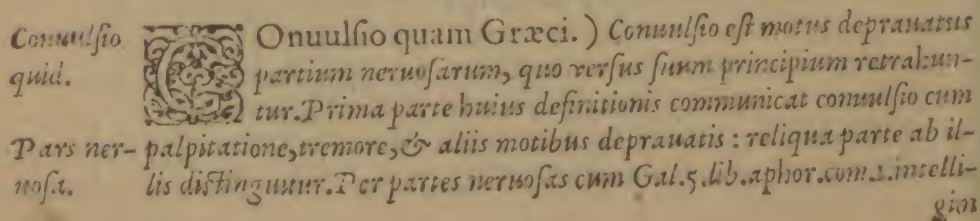 Conuulsio
quid.
COnuulsio quam Græci.) Conuulsio est motus deprauatus
partium neruosarum, quo versus suum principium retrahun-
tur. Prima parte huius definitionis communicat conuulsio cum
Pars ner-
uosa.
palpitatione, tremore, & aliis motibus deprauatis : reliqua parte ab il-
lis distinguitur. Per partes neruosas cum Gal. 5. lib. aphor. com. 1. intelli-